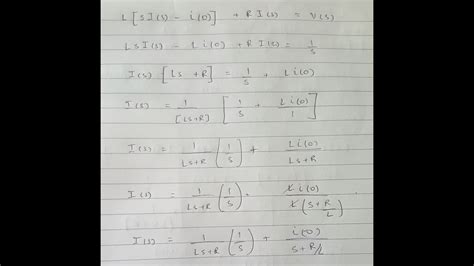 L[SI(S) - i(0)] + RI(S) = V(S)
LSI(S) - Li(0) + RI(S) = 1/S
I(S) [LS + R] = 1/S + Li(0)
I(S) = 1/[LS+R] [1/S + Li(0)/1]
I(S) = 1/LS+R (1/S) + Li(0)/LS+R
I(S) = 1/LS+R (1/S) + Li(0)/L(S+R/L)
I(S) = 1/LS+R (1/S) + i(0)/S+R/L